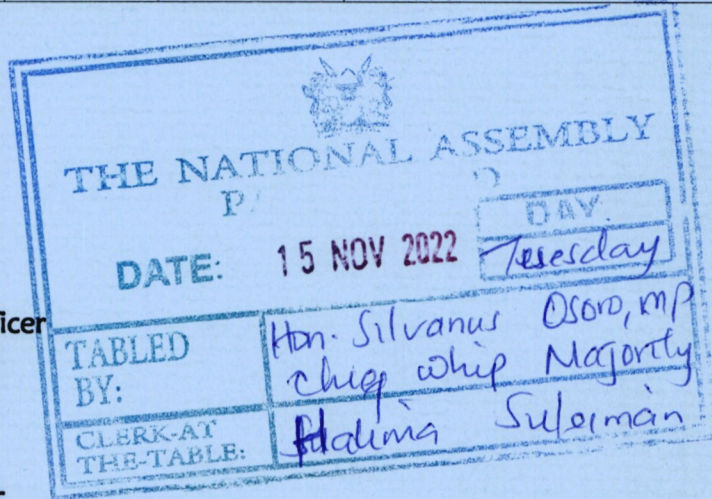 THE NATIONAL ASSEMBLY
DAY.
DATE: 15 NOV 2022 Tuesday
icer
TABLED BY: Hon. Silvanus Osoro, MP
Chief Whip Majority
CLERK-AT THE-TABLE: Halima Suleiman